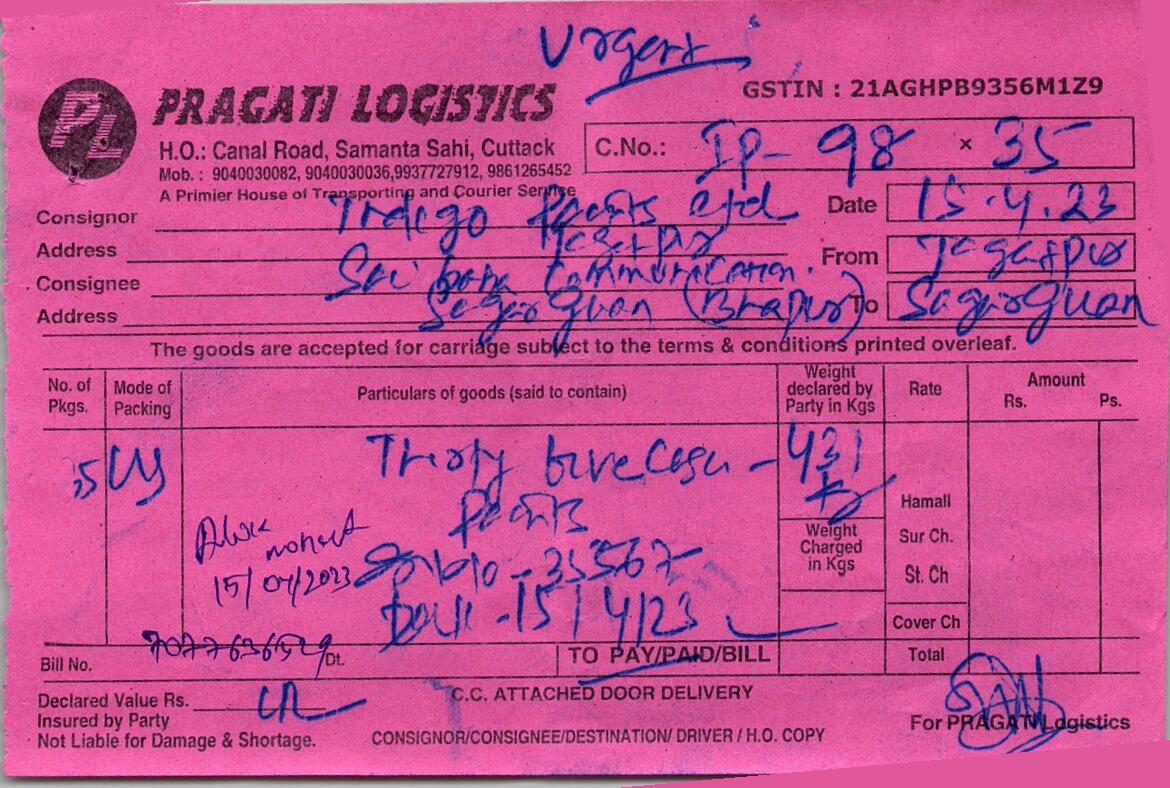 Urgent
PL
PRAGATI LOGISTICS
GSTIN : 21AGHPB9356M1Z9
H.O.: Canal Road, Samanta Sahi, Cuttack
Mob. : 9040030082, 9040030036,9937727912, 9861265452
A Primier House of Transporting and Courier Service
C.No.: IP- 98 × 35
Consignor Indigo Paints Ltd
Date 15.4.23
Address
From Jagatpur
Consignee Sai baba Communication.
Address Sagarguan (Bnapur)
To Sagarguan
The goods are accepted for carriage subject to the terms & conditions printed overleaf.
No. of Pkgs.
Mode of Packing
Particulars of goods (said to contain)
Weight declared by Party in Kgs
Rate
Amount
Rs. Ps.
Thirty five - 431
Paints
Hamall
Weight Charged in Kgs
Sur Ch.
15/04/2023 - 35567
St. Ch
15/4/23
Cover Ch
7077636529
Bill No. Dt.
TO PAY/PAID/BILL
Total
Declared Value Rs.
C.C. ATTACHED DOOR DELIVERY
Insured by Party
For PRAGATI Logistics
Not Liable for Damage & Shortage.
CONSIGNOR/CONSIGNEE/DESTINATION/ DRIVER / H.O. COPY